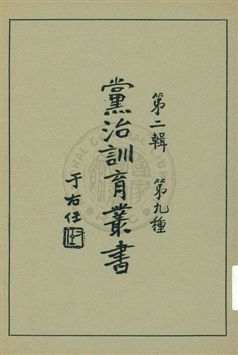 第二輯 第九種
黨治訓育叢書
于右任